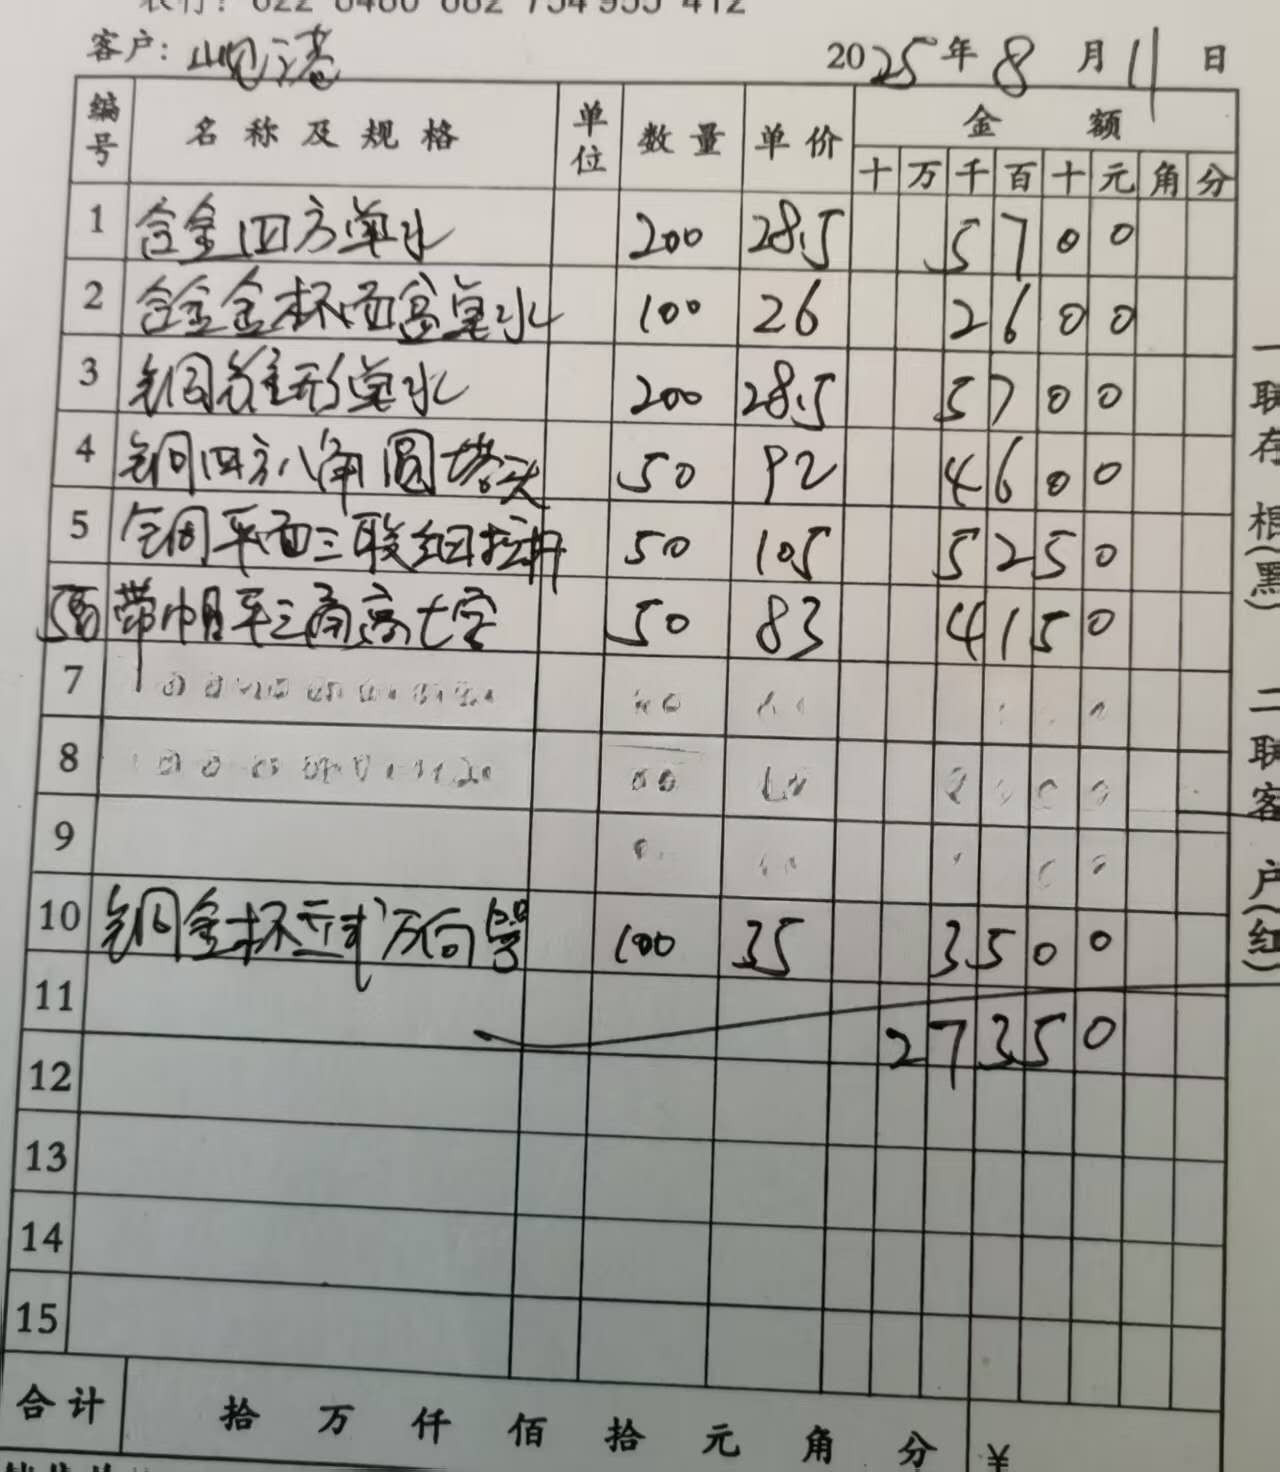 622 8480 882 754 955 412
客户: 2025年8月11日
编号 名称及规格 单位 数量 单价 金额
十 万 千 百 十 元 角 分
1 合金四方单水 200 28.5 5700
2 合金金杯面盆单水 100 26 2600
3 铜锥形单水 200 28.5 5700
4 铜四方八角圆塔头 50 92 4600
5 全铜平面三联 50 105 5250
带帽平三角高七字 50 83 4150
7
8
9
10 铜金杯立式万向 100 35 3500
11 27350
12
13
14
15
合计 拾 万 仟 佰 拾 元 角 分 ¥
一联存根(黑) 二联客户(红)